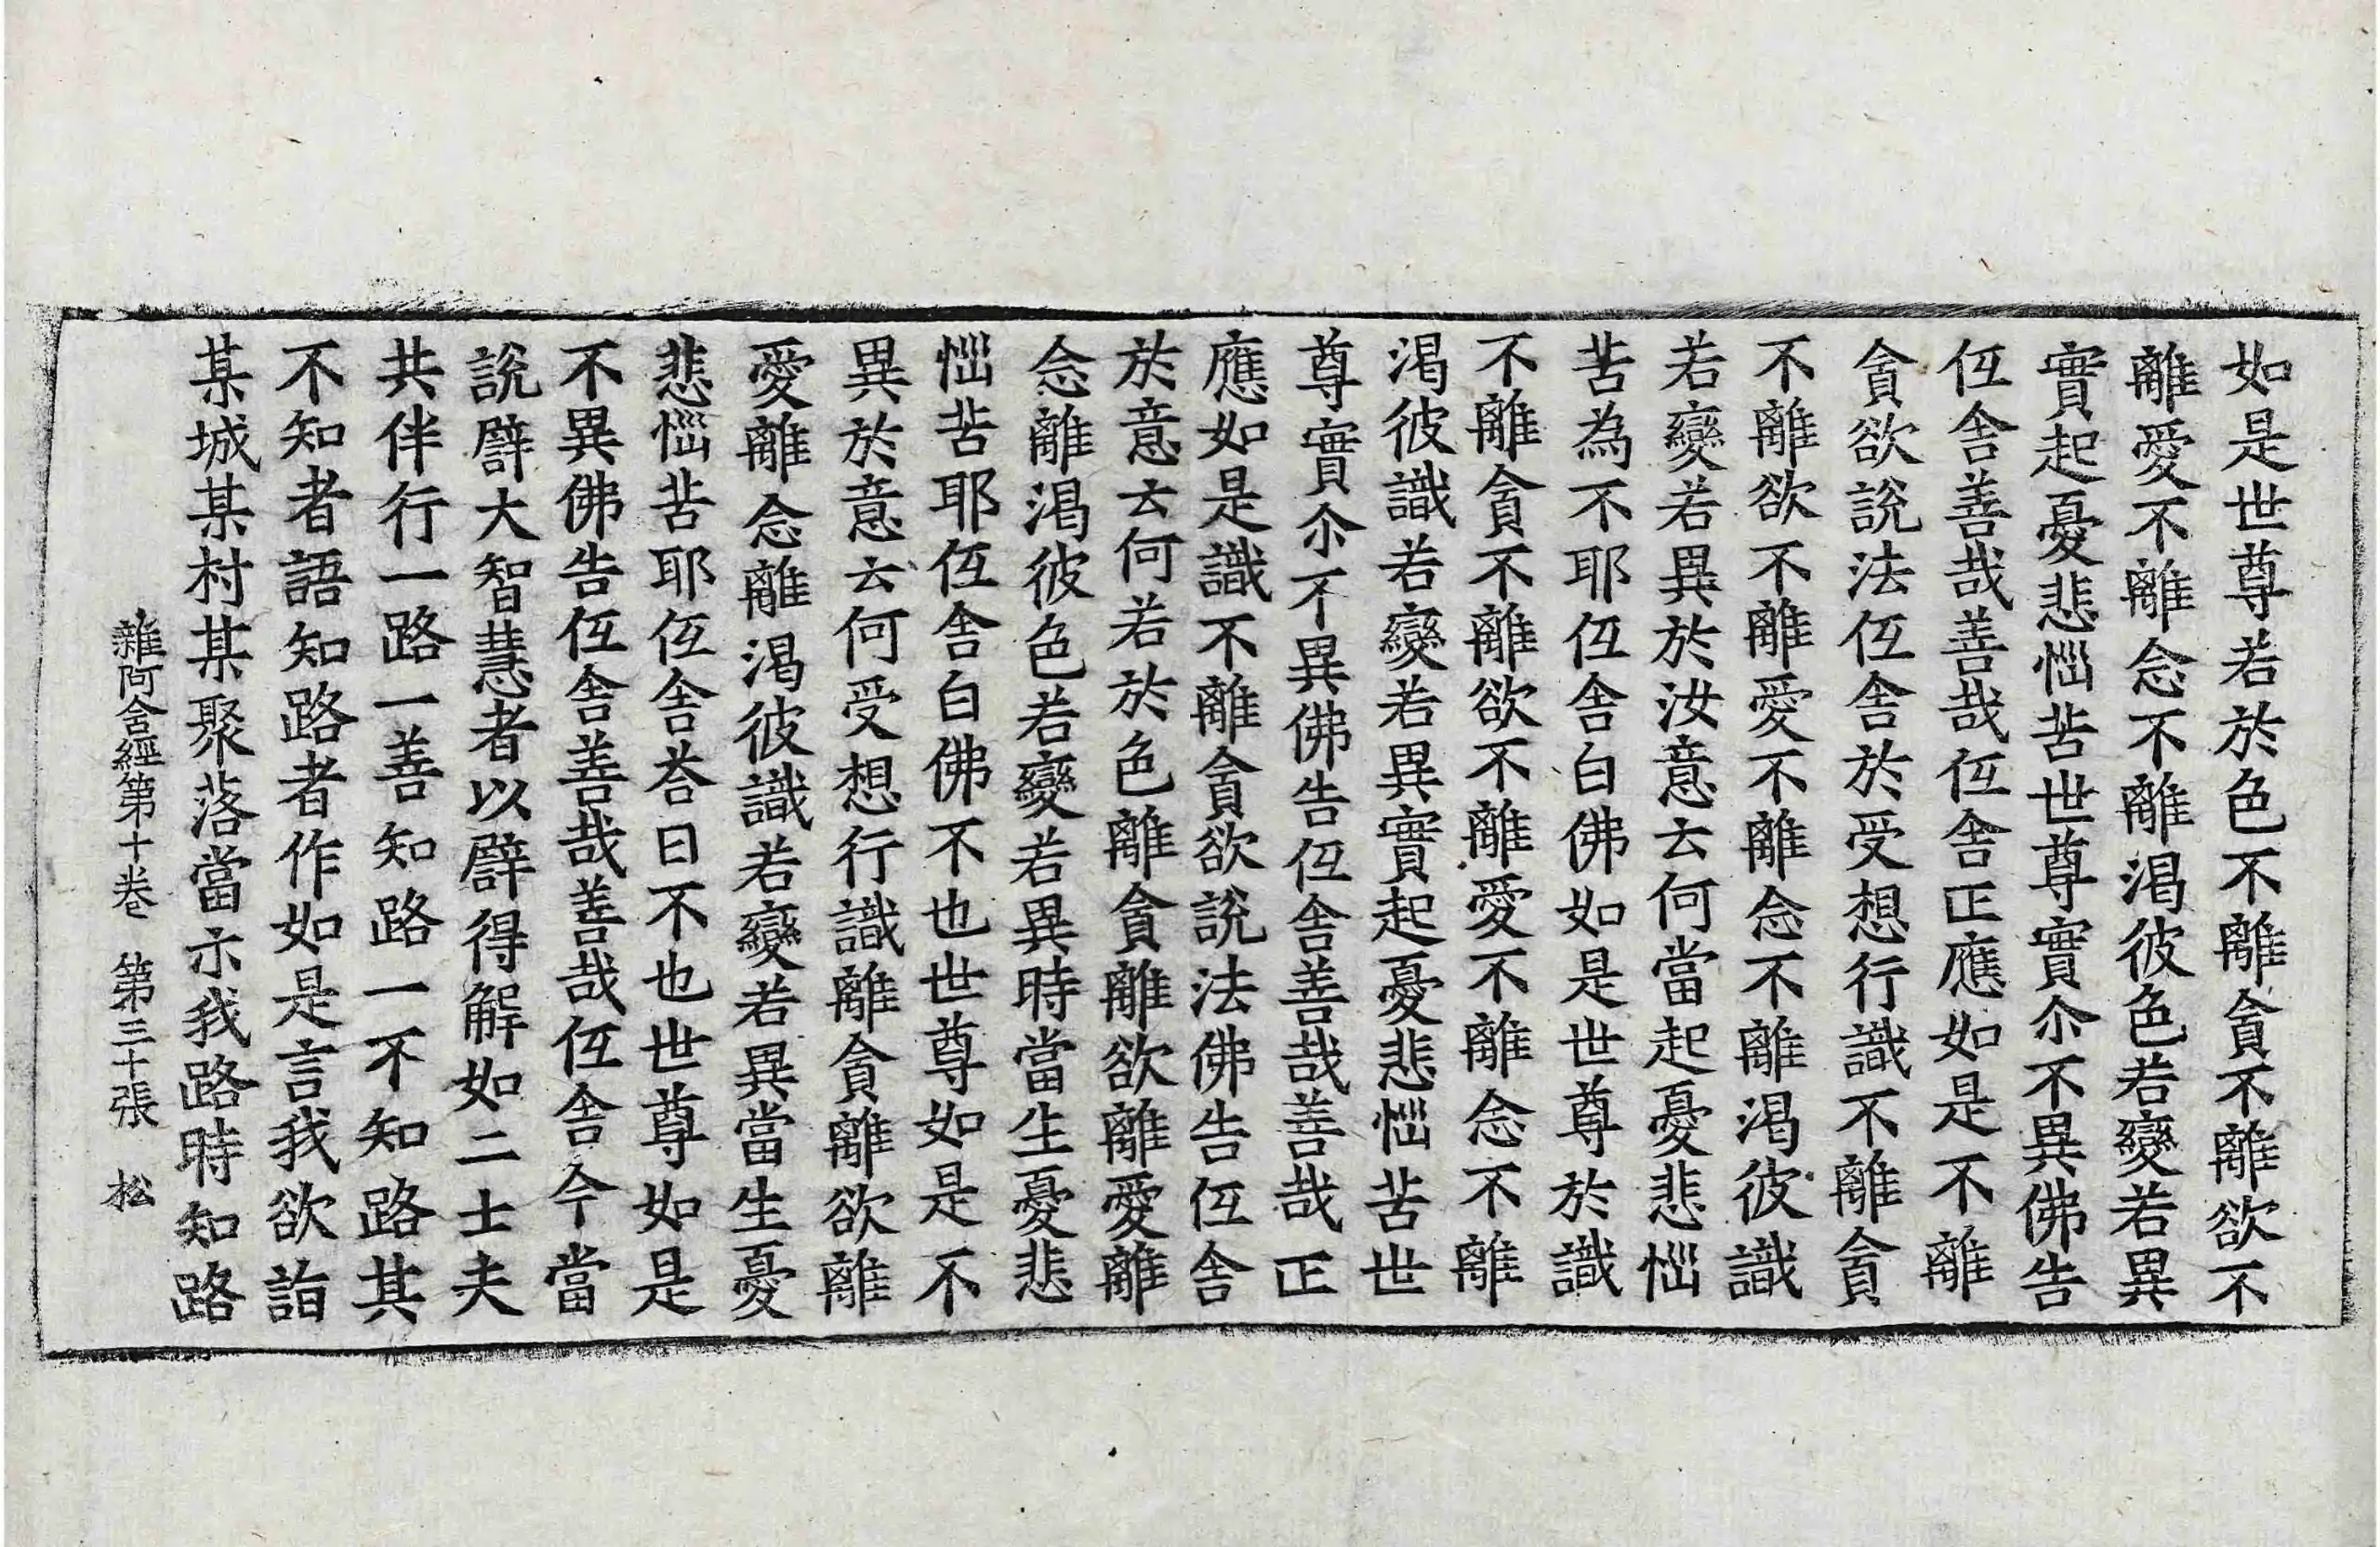 如是世尊若於色不離貪不離欲不
離愛不離念不離渴彼色若變若異
實起憂悲惱苦世尊實尒不異佛告
仾舍善哉善哉仾舍正應如是不離
貪欲說法仾舍於受想行識不離貪
不離欲不離愛不離念不離渴彼識
若變若異於汝意云何當起憂悲惱
苦為不耶仾舍白佛如是世尊於識
不離貪不離欲不離愛不離念不離
渴彼識若變若異實起憂悲惱苦世
尊實尒不異佛告仾舍善哉善哉正
應如是識不離貪欲說法佛告仾舍
於意云何若於色離貪離欲離愛離
念離渴彼色若變若異時當生憂悲
惱苦耶仾舍白佛不也世尊如是不
異於意云何受想行識離貪離欲離
愛離念離渴彼識若變若異當生憂
悲惱苦耶仾舍荅曰不也世尊如是
不異佛告仾舍善哉善哉仾舍今當
說譬大智慧者以譬得解如二士夫
共伴行一路一善知路一不知路其
不知者語知路者作如是言我欲詣
某城某村某聚落當示我路時知路
雜阿含經第十卷 第三十張 松